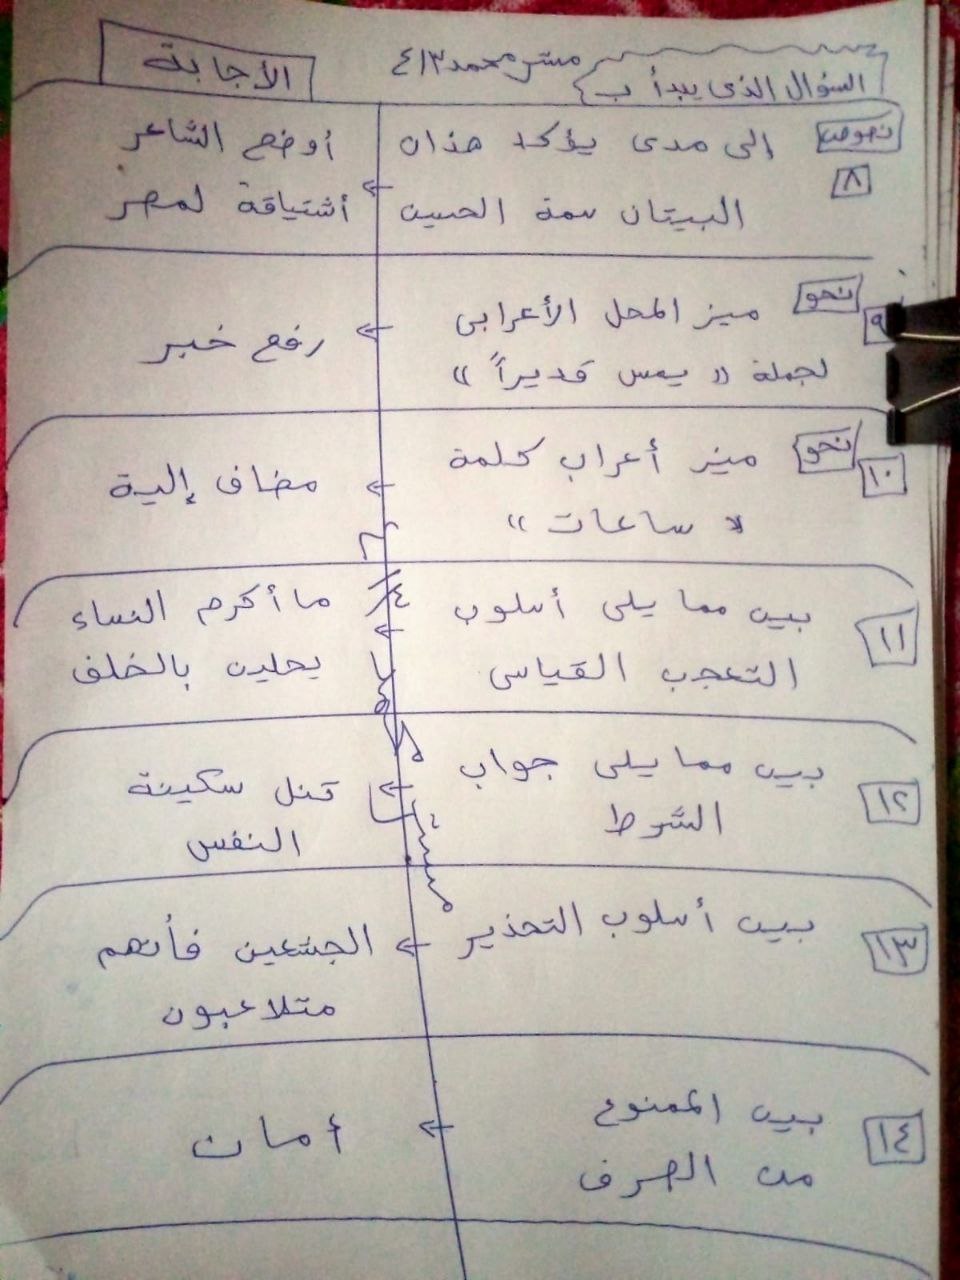 مستر محمد ٤١٣
السؤال الذى يبدأ ب
الأجابة
نصوص
٨
إلى مدى يؤكد هذان
البيتان سمة الحسين
أوضح الشاعر
أشتياقة لمصر
نحو
٩
ميز المحل الأعرابى
لجملة « يمس قديراً »
رفع خبر
نحو
١٠
ميز أعراب كلمة
« ساعات »
مضاف إلية
١١
بين مما يلى أسلوب
التعجب القياسى
ما أكرم النساء
يحلين بالخلف
١٢
بين مما يلى جواب
الشرط
تنل سكينة
النفس
١٣
بين أسلوب التحذير
الجشعين فأنهم
متلاعبون
١٤
بين الممنوع
من الصرف
أمان